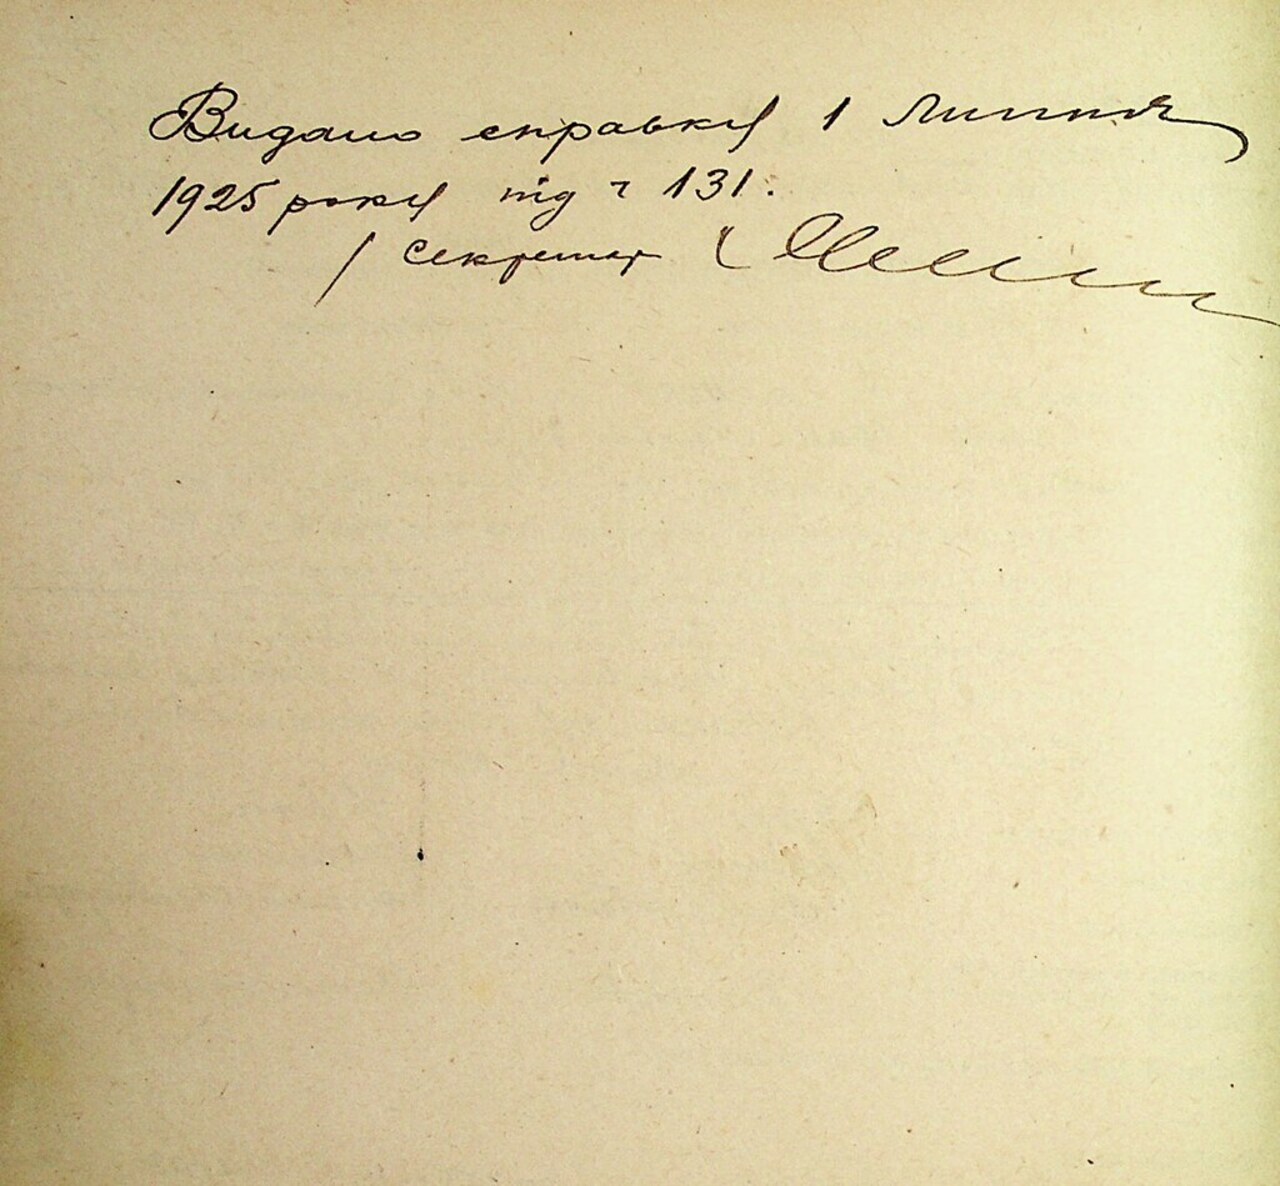 Видано справку 1 Липня
1925 року під ч 131.
/ Секретар (